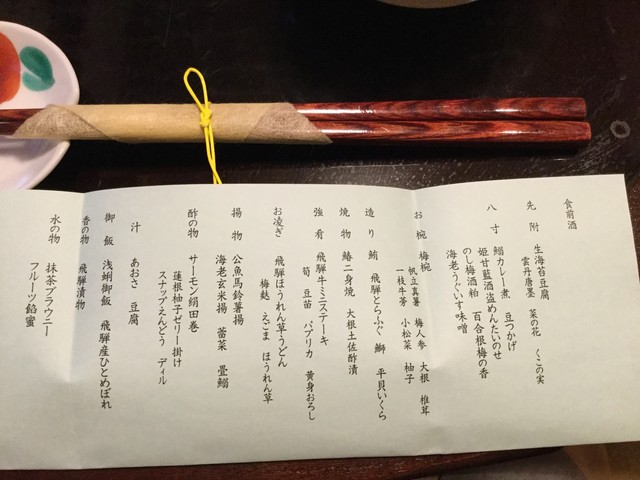 食前酒
先附 生海苔豆腐 菜の花 くこの実
雲丹唐墨
八寸 鰯カレー煮 豆つかげ
姫甘藍酒盗めんたいのせ
のし梅酒粕 百合根梅の香
海老うぐいす味噌
お椀 梅椀
帆立真薯 梅人参 大根 椎茸
一枝牛蒡 小松菜 柚子
造り 鮪 飛騨とらふぐ 鰤 平貝いくら
焼物 鰆二身焼 大根土佐酢漬
強肴 飛騨牛ミニステーキ
筍 豆苗 パプリカ 黄身おろし
お凌ぎ 飛騨ほうれん草うどん
梅麩 えごま ほうれん草
揚物 公魚馬鈴薯揚
海老玄米揚 蕾菜 畳鰯
酢の物 サーモン絹田巻
蓮根柚子ゼリー掛け
スナップえんどう ディル
汁 あおさ 豆腐
御飯 浅蜊御飯 飛騨産ひとめぼれ
香の物 飛騨漬物
水の物 抹茶ブラウニー
フルーツ餡蜜